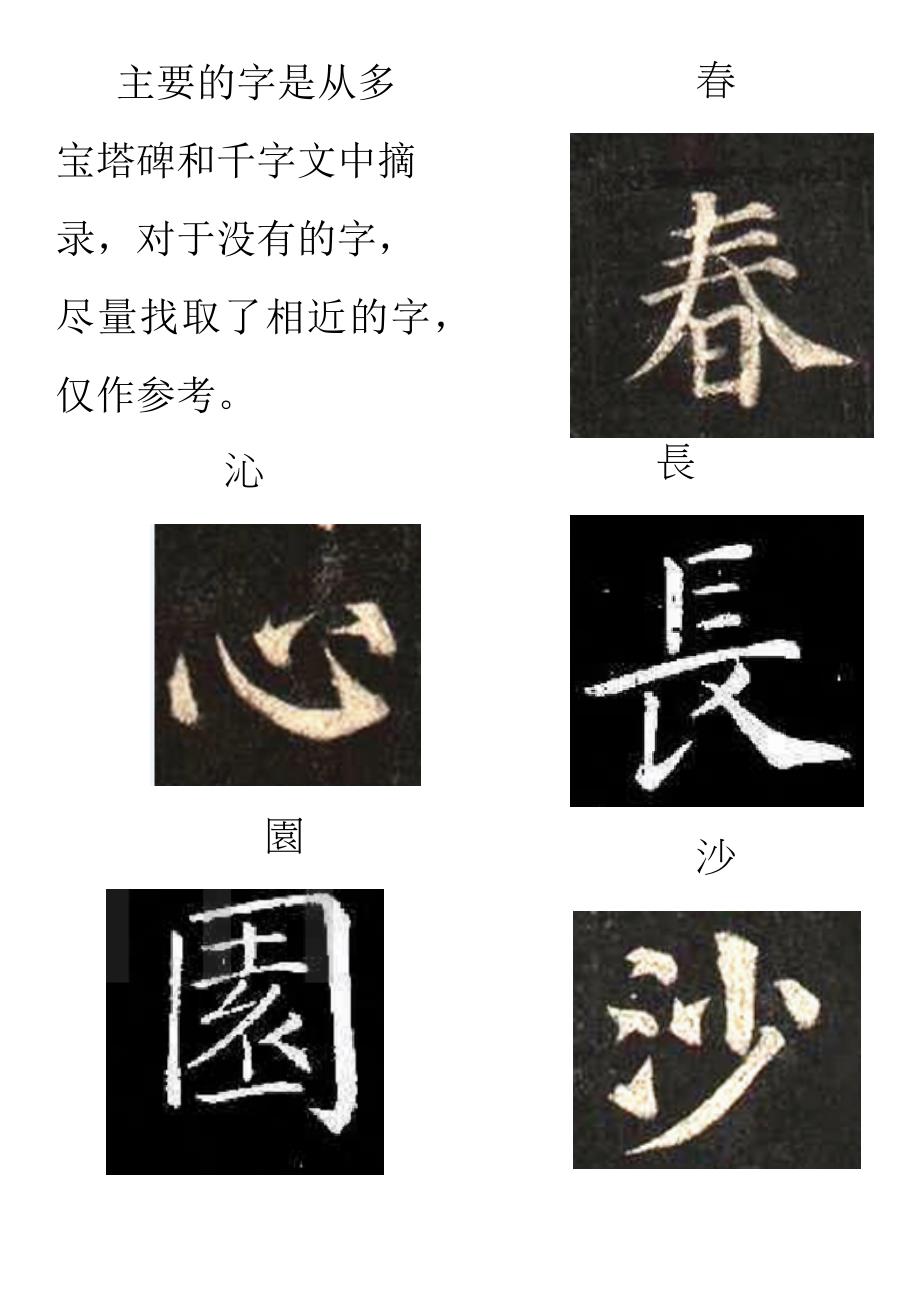 主要的字是从多
宝塔碑和千字文中摘
录，对于没有的字，
尽量找取了相近的字，
仅作参考。
沁
心
園
園
春
春
長
長
沙
沙